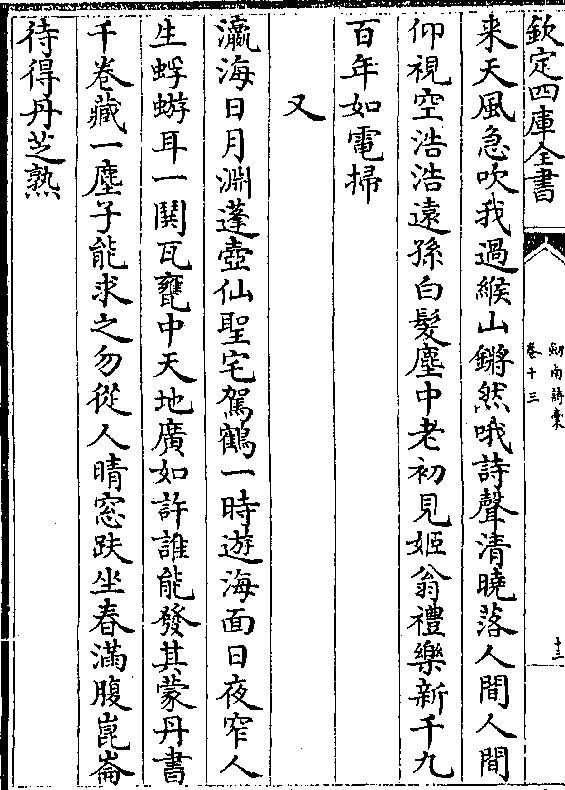 欽定四庫全書
劒南詩稾
卷十三
十三
来天風急吹我過緱山鏘然哦詩聲清曉落人間人間
仰視空浩浩遠孫白髮塵中老初見姬翁禮樂新千九
百年如電掃
又
瀛海日月淵蓬壺仙聖宅駕鶴一時遊海面日夜窄人
生蜉蝣耳一閧瓦甕中天地廣如許誰能發其蒙丹書
千卷藏一塵子能求之勿從人晴窓趺坐春滿腹崑崙
待得丹芝熟